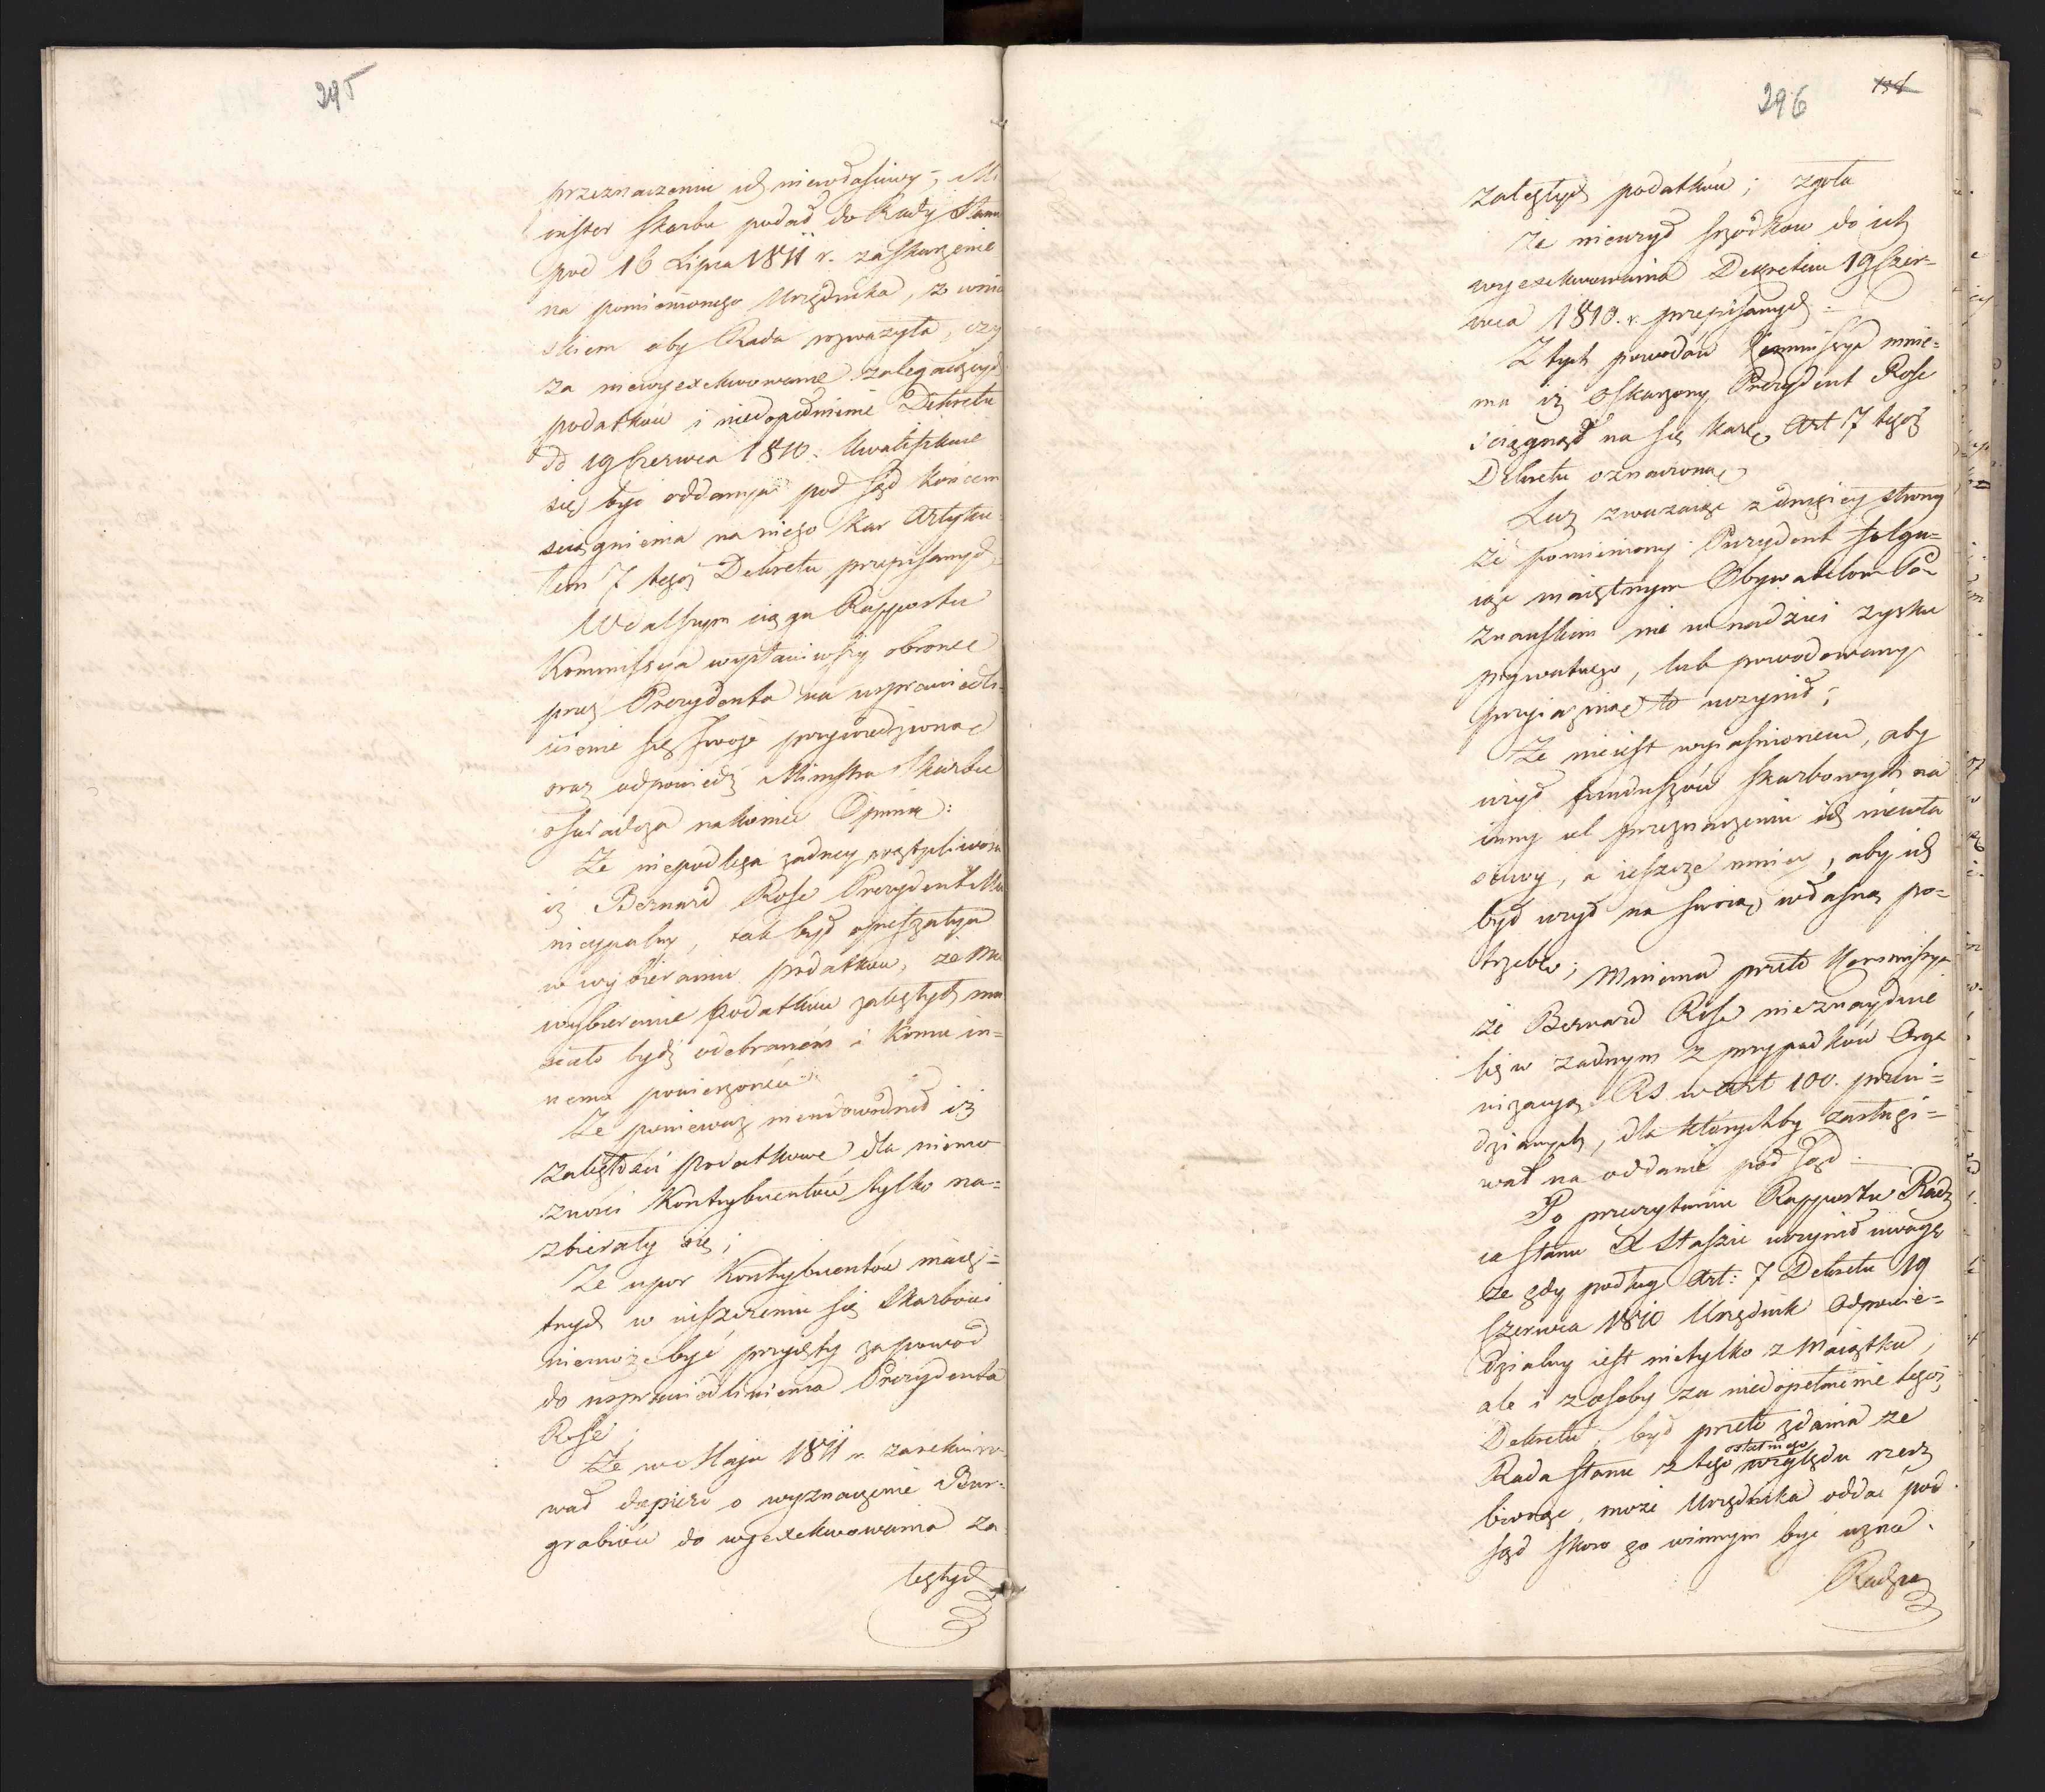 295
przeznaczeniu ich niewłaściwy; Mi
nister Skarbu podał do Rady Stanu
pod 16 Lipca 1811 r. zaskarżenie
na pomienionego Urzędnika, z wnio
skiem aby Rada rozważyła, czy
za niewyexekwowanie zalegaiących
podatków i niedopełnienie Dekretu
d<sup>o</sup> 19 Czerwca 1810. kwalifikuie
się być oddanym pod Sąd końcem
sciągnienia na niego kar Artyku-
łem 7 tegoż Dekretu przepisanych.
W dalszym ciągu Rapportu
Kommissya wystawiwszy obronę
przez Prezydenta na usprawiedli-
wienie się swoie przywiedzioną
oraz odpowiedź Ministra Skarbu
oświadcza nakoniec Opinią:
Że niepodlega żadney wątpliwości
iż Bernard Rose Prezydent Mu
nicypalny, tak był opieszałym
w wybieraniu podatków, że mu
wybieranie podatków zaległych mu
siało bydź odebraném i komu in-
nemu powierzoném.
Że ponieważ nieudowodnił iż
zaległości podatkowe dla niemo
żności kontrybuentów tylko na-
zbierały się;
Że upor kontrybuentów maię-
tnych w uiszczeniu się Skarbowi
niemoże być przyięty za powód
do usprawiedliwienia Prezydenta
Rose;
Że w Maju 1811 r. zarekwiro-
wał dopiero o wyznaczenie Bur-
grabiów do wyexekwowania za
ległych
296
138
zaległych podatków; zgoła
że nieużył srzodków do ich
wyexekwowania Dekretem 19 Czer-
wca 1810. r. przepisanych:
Z tych powodów Kommissya mnie-
ma iż oskarżony Prezydent Rose
sciągnął na się karę Art 7 tegoż
Dekretu oznaczoną
Lecz zważaiąc z drugiey strony
że pomieniony Prezydent folgu-
iąc maiętnym Obywatelom Po-
znańskim nie w nadziei zysku
prywatnego, lub powodowany
przyiaźnią to uczynił;
Że nieiest wyiaśnionem, aby
użył funduszów skarbowych na
inny cel przeznaczeniu ich niewła
ściwy, a ieszcze mniey, aby ich
był użył na swoią własną po-
trzebę; Mniema przeto Kommissya
że Bernard Rose nieznayduie
się w żadnym z przypadków Orga
nizacyą RS. w Art 100. przewi-
dzianych, dla którychby zasługi-
wał na oddanie pod Sąd.
Po przeczytaniu Rapportu Radz
ca Stanu X Staszic uczynił uwagę
że gdy podług Art: 7 Dekretu 19
Czerwca 1810 Urzędnik odpowie-
dzialny iest nietylko z Maiątku,
ale i z osoby za niedopełnienie tegoż
Dekretu, był przeto zdania że
Rada Stanu z tego ostatniego względu rzecz
biorąc, może Urzędnika oddać pod
Sąd skoro go winnym być uzna.
Radzca